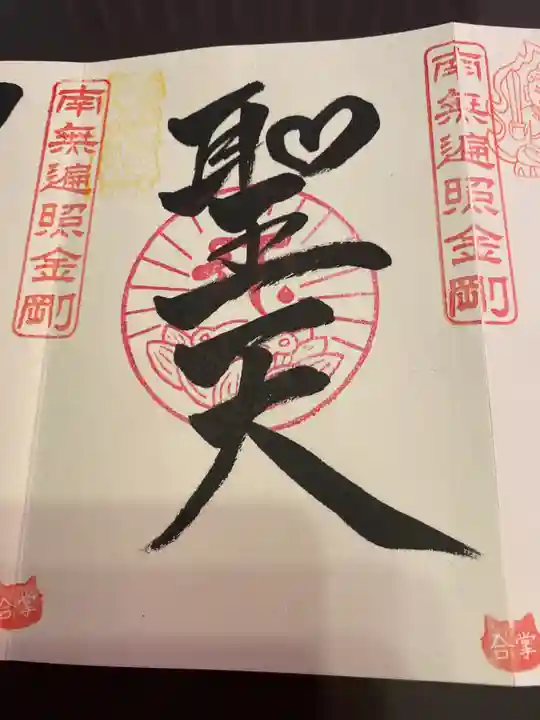 南無遍照金剛
聖天
南無遍照金剛
合掌
合掌